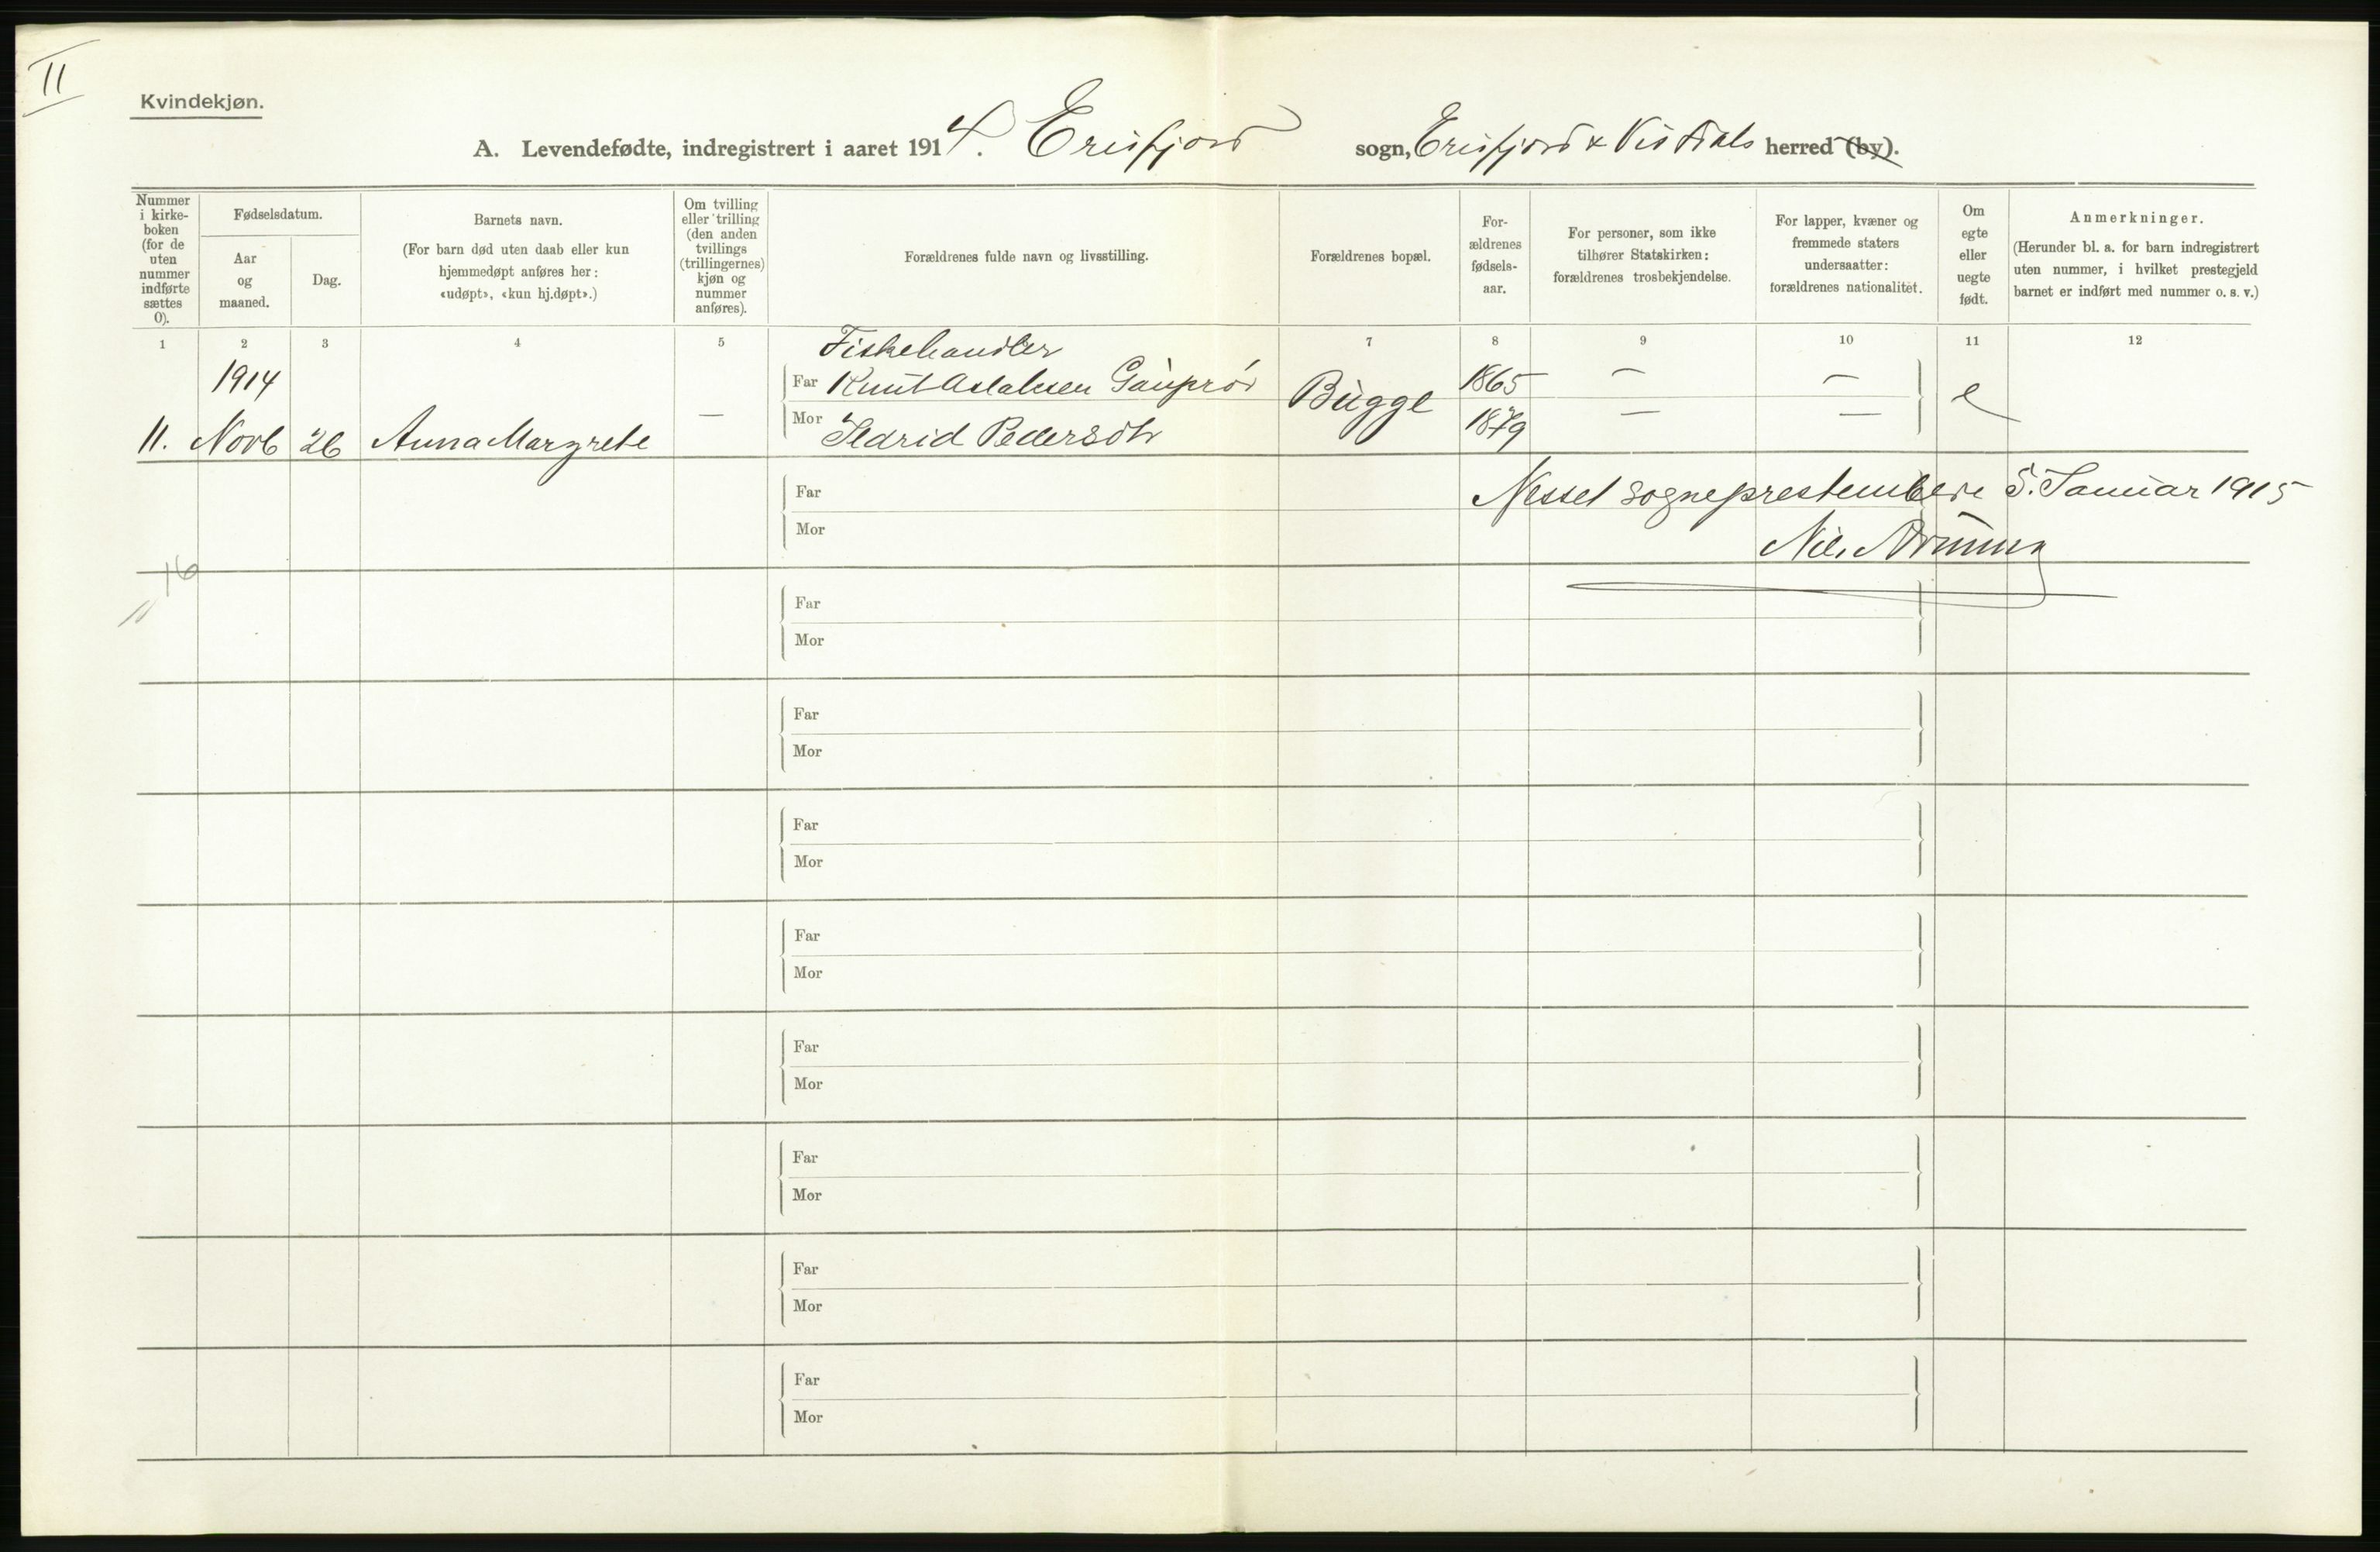 II
Kvindekjøn.
A. Levendefødte, indregistrert i aaret 1914. Eresfjord sogn, Eresfjord & Vistdals herred (by).
Nummer i kirke-boken (for de uten nummer indførte sættes 0).
Fødselsdatum.
Aar og maaned.
Dag.
Barnets navn.
(For barn død uten daab eller kun hjemmedøpt anføres her: «udøpt», «kun hj.døpt».)
Om tvilling eller trilling (den anden tvillings (trillingernes) kjøn og nummer anføres).
Forældrenes fulde navn og livsstilling.
Forældrenes bopæl.
For-ældrenes fødsels-aar.
For personer, som ikke tilhører Statskirken: forældrenes trosbekjendelse.
For lapper, kvæner og fremmede staters undersaatter: forældrenes nationalitet.
Om egte eller uegte født.
Anmerkninger.
(Herunder bl. a. for barn indregistrert uten nummer, i hvilket prestegjeld barnet er indført med nummer o. s. v.)
1 2 3 4 5 7 8 9 10 11 12
Fiskehandler
1914 Far Knut Aslaksen Gauprør Bugge 1865 — — e
11. Novb 26 Anna Margrete — Mor Sedrid Pedersdtr 1879 — —
Far Nesset sogneprestembede 5. Januar 1915
Mor Nils
16
11
Far
Mor
Far
Mor
Far
Mor
Far
Mor
Far
Mor
Far
Mor
Far
Mor
Far
Mor